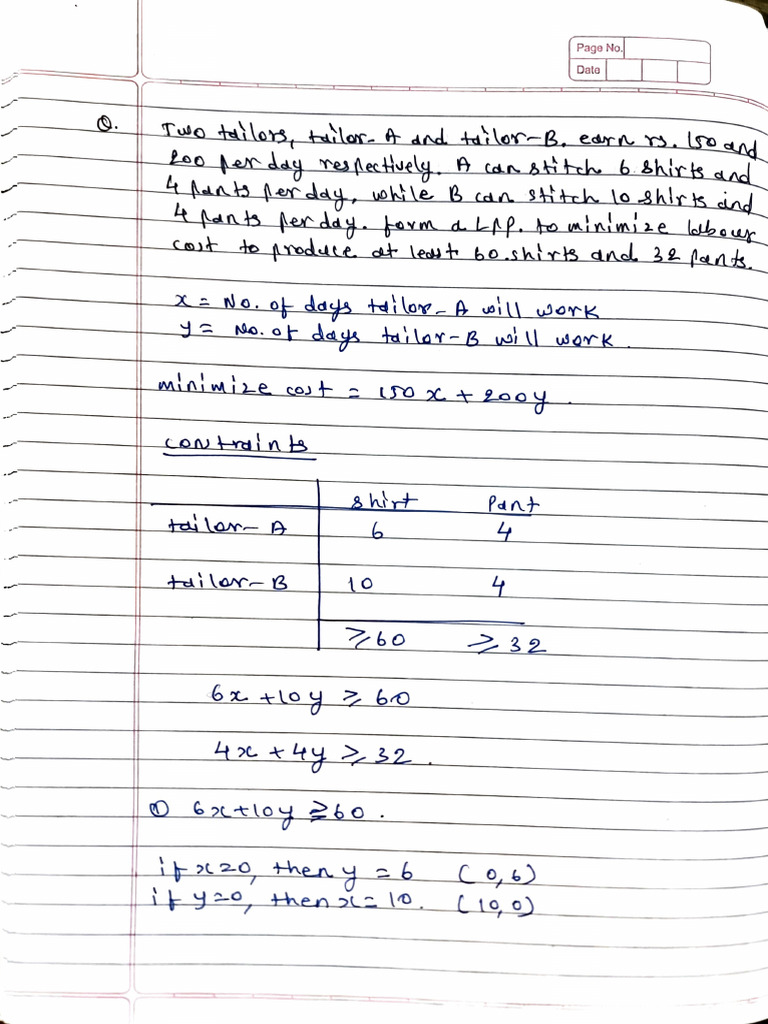 Page No.
Date
Q. Two tailors, tailor-A and tailor-B. earn rs. 150 and
200 per day respectively. A can stitch 6 shirts and
4 pants per day, while B can stitch 10 shirts and
4 pants per day. form a LPP. to minimize labour
cost to produce at least 60 shirts and 32 pants.
x = No. of days tailor-A will work
y = No. of days tailor-B will work.
minimize cost = 150x + 200y.
contraints
shirt Pant
tailor-A 6 4
tailor-B 10 4
⩾60 ⩾32
6x + 10y ⩾ 60
4x + 4y ⩾ 32.
① 6x+10y ⩾ 60.
if x=0, then y = 6 (0,6)
if y=0, then x= 10. (10,0)